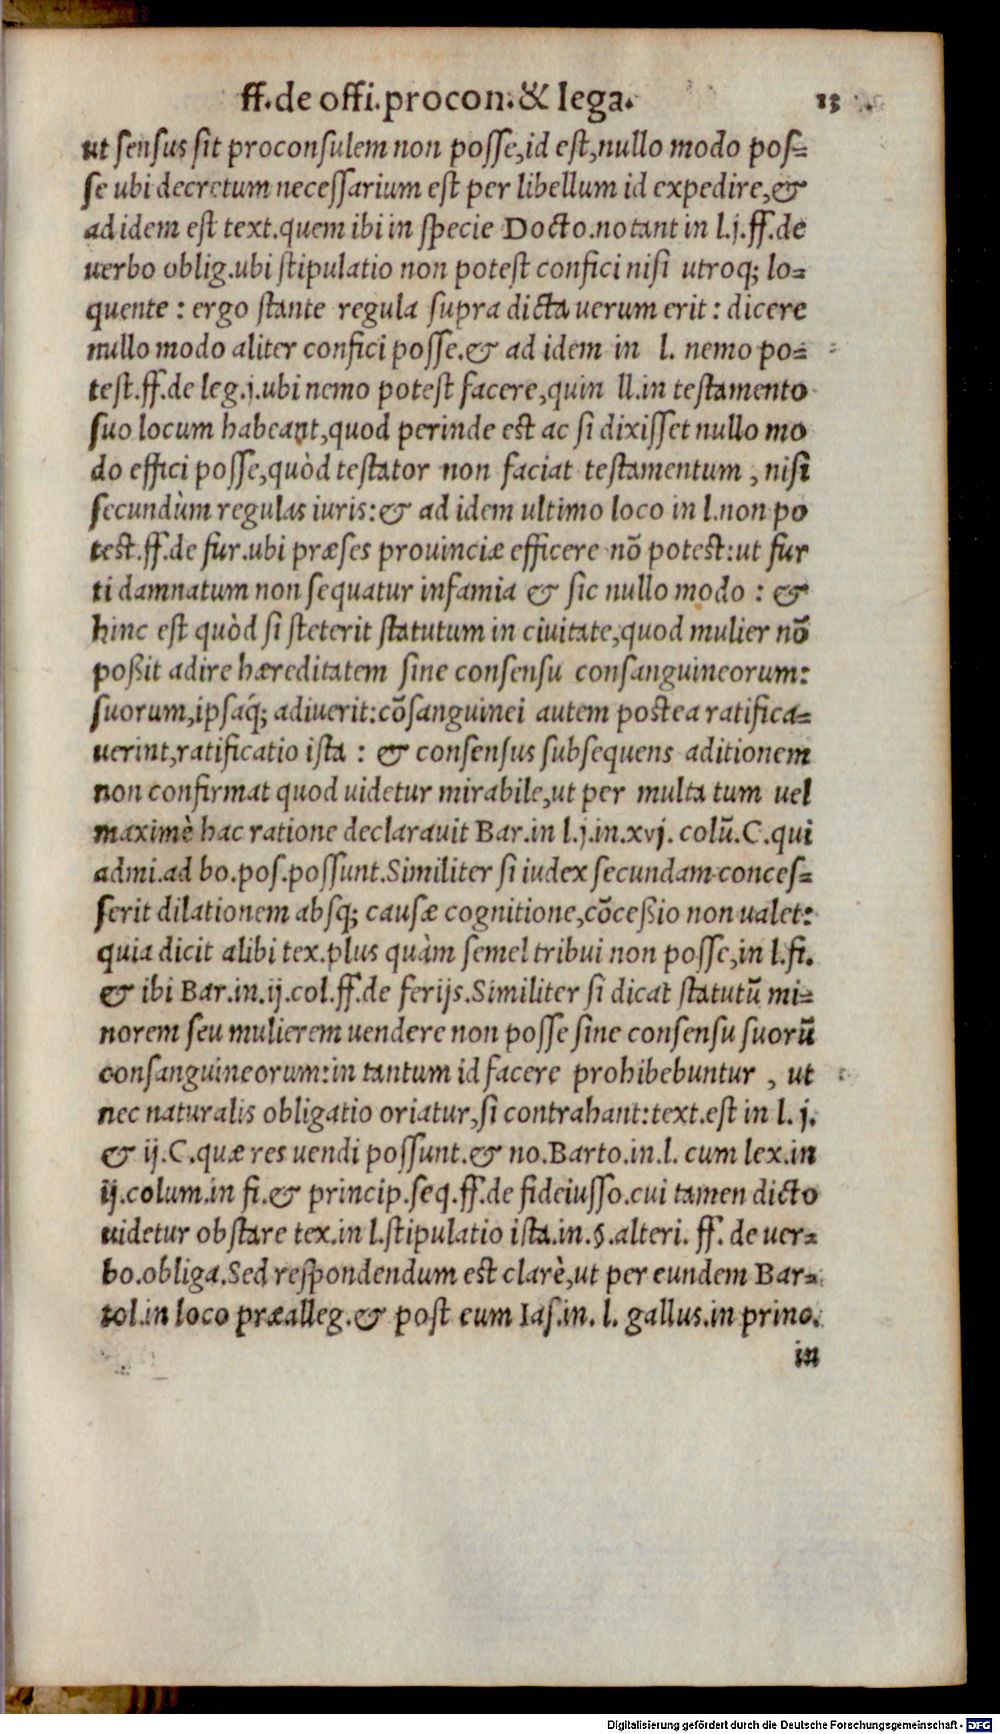 ff.de offi.procon.& lega. 13
ut sensus sit proconsulem non posse,id est,nullo modo pos=
se ubi decretum necessarium est per libellum id expedire,&
ad idem est text.quem ibi in specie Docto.notant in l.j.ff.de
uerbo oblig.ubi stipulatio non potest confici nisi utroq; lo=
quente : ergo stante regula supra dicta uerum erit : dicere
nullo modo aliter confici posse.& ad idem in l. nemo po=
test.ff.de leg.j.ubi nemo potest facere,quin ll.in testamento
suo locum habeant,quod perinde est ac si dixisset nullo mo
do effici posse,quòd testator non faciat testamentum , nisi
secundùm regulas iuris:& ad idem ultimo loco in l.non po
test.ff.de fur.ubi præses prouinciæ efficere nõ potest:ut fur
ti damnatum non sequatur infamia & sic nullo modo : &
hinc est quòd si steterit statutum in ciuitate,quod mulier nõ
poßit adire hæreditatem sine consensu consanguineorum:
suorum,ipsaq́; adiuerit:cõsanguinei autem postea ratifica=
uerint,ratificatio ista : & consensus subsequens aditionem
non confirmat quod uidetur mirabile,ut per multa tum uel
maximè hac ratione declarauit Bar.in l.j.in.xvj. colũ.C.qui
admi.ad bo.pos.possunt.Similiter si iudex secundam conces=
serit dilationem absq; causæ cognitione,cõceßio non ualet:
quia dicit alibi tex.plus quàm semel tribui non posse,in l.fi.
& ibi Bar.in.ij.col.ff.de ferijs.Similiter si dicat statutũ mi=
norem seu mulierem uendere non posse sine consensu suorũ
consanguineorum:in tantum id facere prohibebuntur , ut
nec naturalis obligatio oriatur,si contrahant:text.est in l. j.
& ij.C.quæ res uendi possunt.& no.Barto.in.l. cum lex.in
ij.colum.in fi.& princip.seq.ff.de fideiusso.cui tamen dicto
uidetur obstare tex.in l.stipulatio ista.in.§.alteri. ff. de uer=
bo.obliga.Sed respondendum est clarè,ut per eundem Bar=
tol.in loco præalleg.& post eum Ias.in. l. gallus.in prino.
in
Digitalisierung gefördert durch die Deutsche Forschungsgemeinschaft - DFG